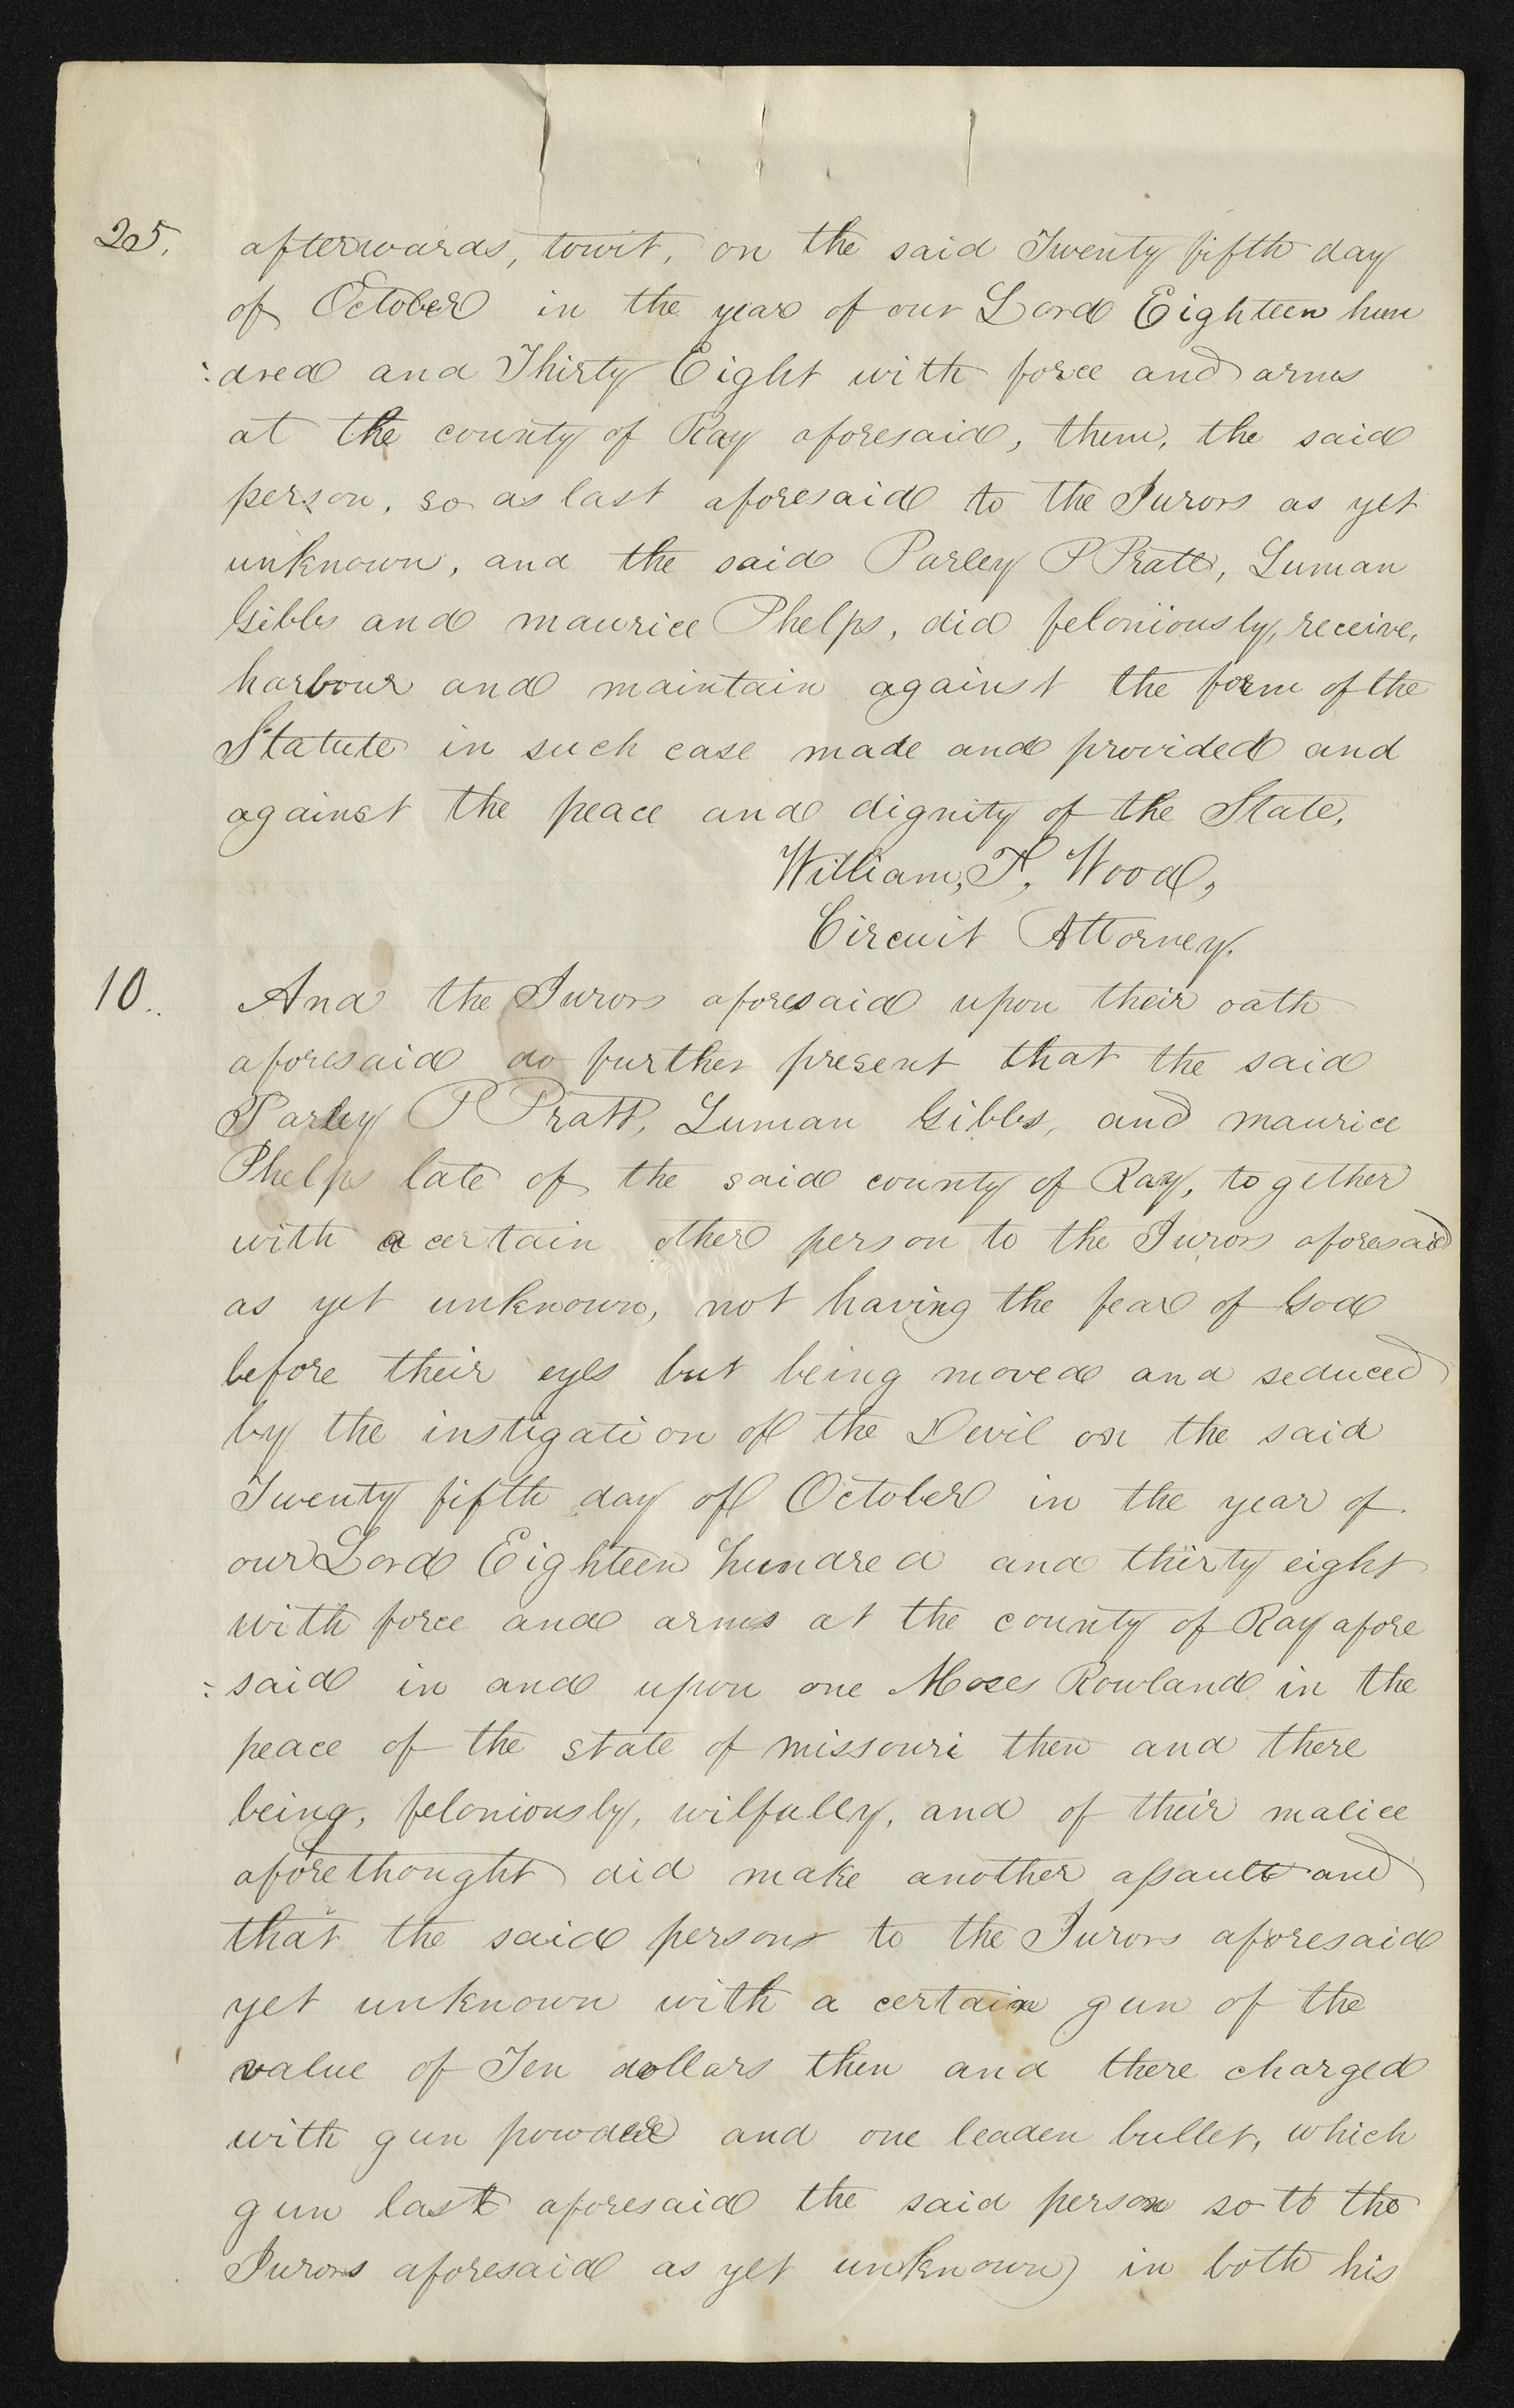 25. afterwards, towit, on the said Twenty fifth day
of October in the year of our Lord Eighteen hun
:dred and Thirty Eight with force and arms
at the county of Ray aforesaid, them, the said
person, so as last aforesaid to the Jurors as yet
unknown, and the said Parley P Pratt, Luman
Gibbs and maurice Phelps, did feloniously, receive,
harbour and maintain against the form of the
Statute in such case made and provided and
against the peace and dignity of the State.
William, T, Wood,
Circuit Attorney.
10.. And the Jurors aforesaid upon their oath
aforesaid do further present that the said
Parley P Pratt, Luman Gibbs, and maurice
Phelps late of the said county of Ray, together
with a certain other person to the Jurors aforesaid
as yet unknown, not having the fear of God
before their eyes but being moved and seduced
by the instigation of the Devil on the said
Twenty fifth day of October in the year of
our Lord Eighteen hundred and thirty eight
with force and arms at the county of Ray afore
:said in and upon one Moses Rowland in the
peace of the state of missouri then and there
being, feloniously, wilfully, and of their malice
aforethought did make another assault and
that the said persons to the Jurors aforesaid
yet unknown with a certain gun of the
value of Ten dollars then and there charged
with gun powder and one leaden bullet, which
gun last aforesaid the said person so to the
Jurors aforesaid as yet unknown) in both his